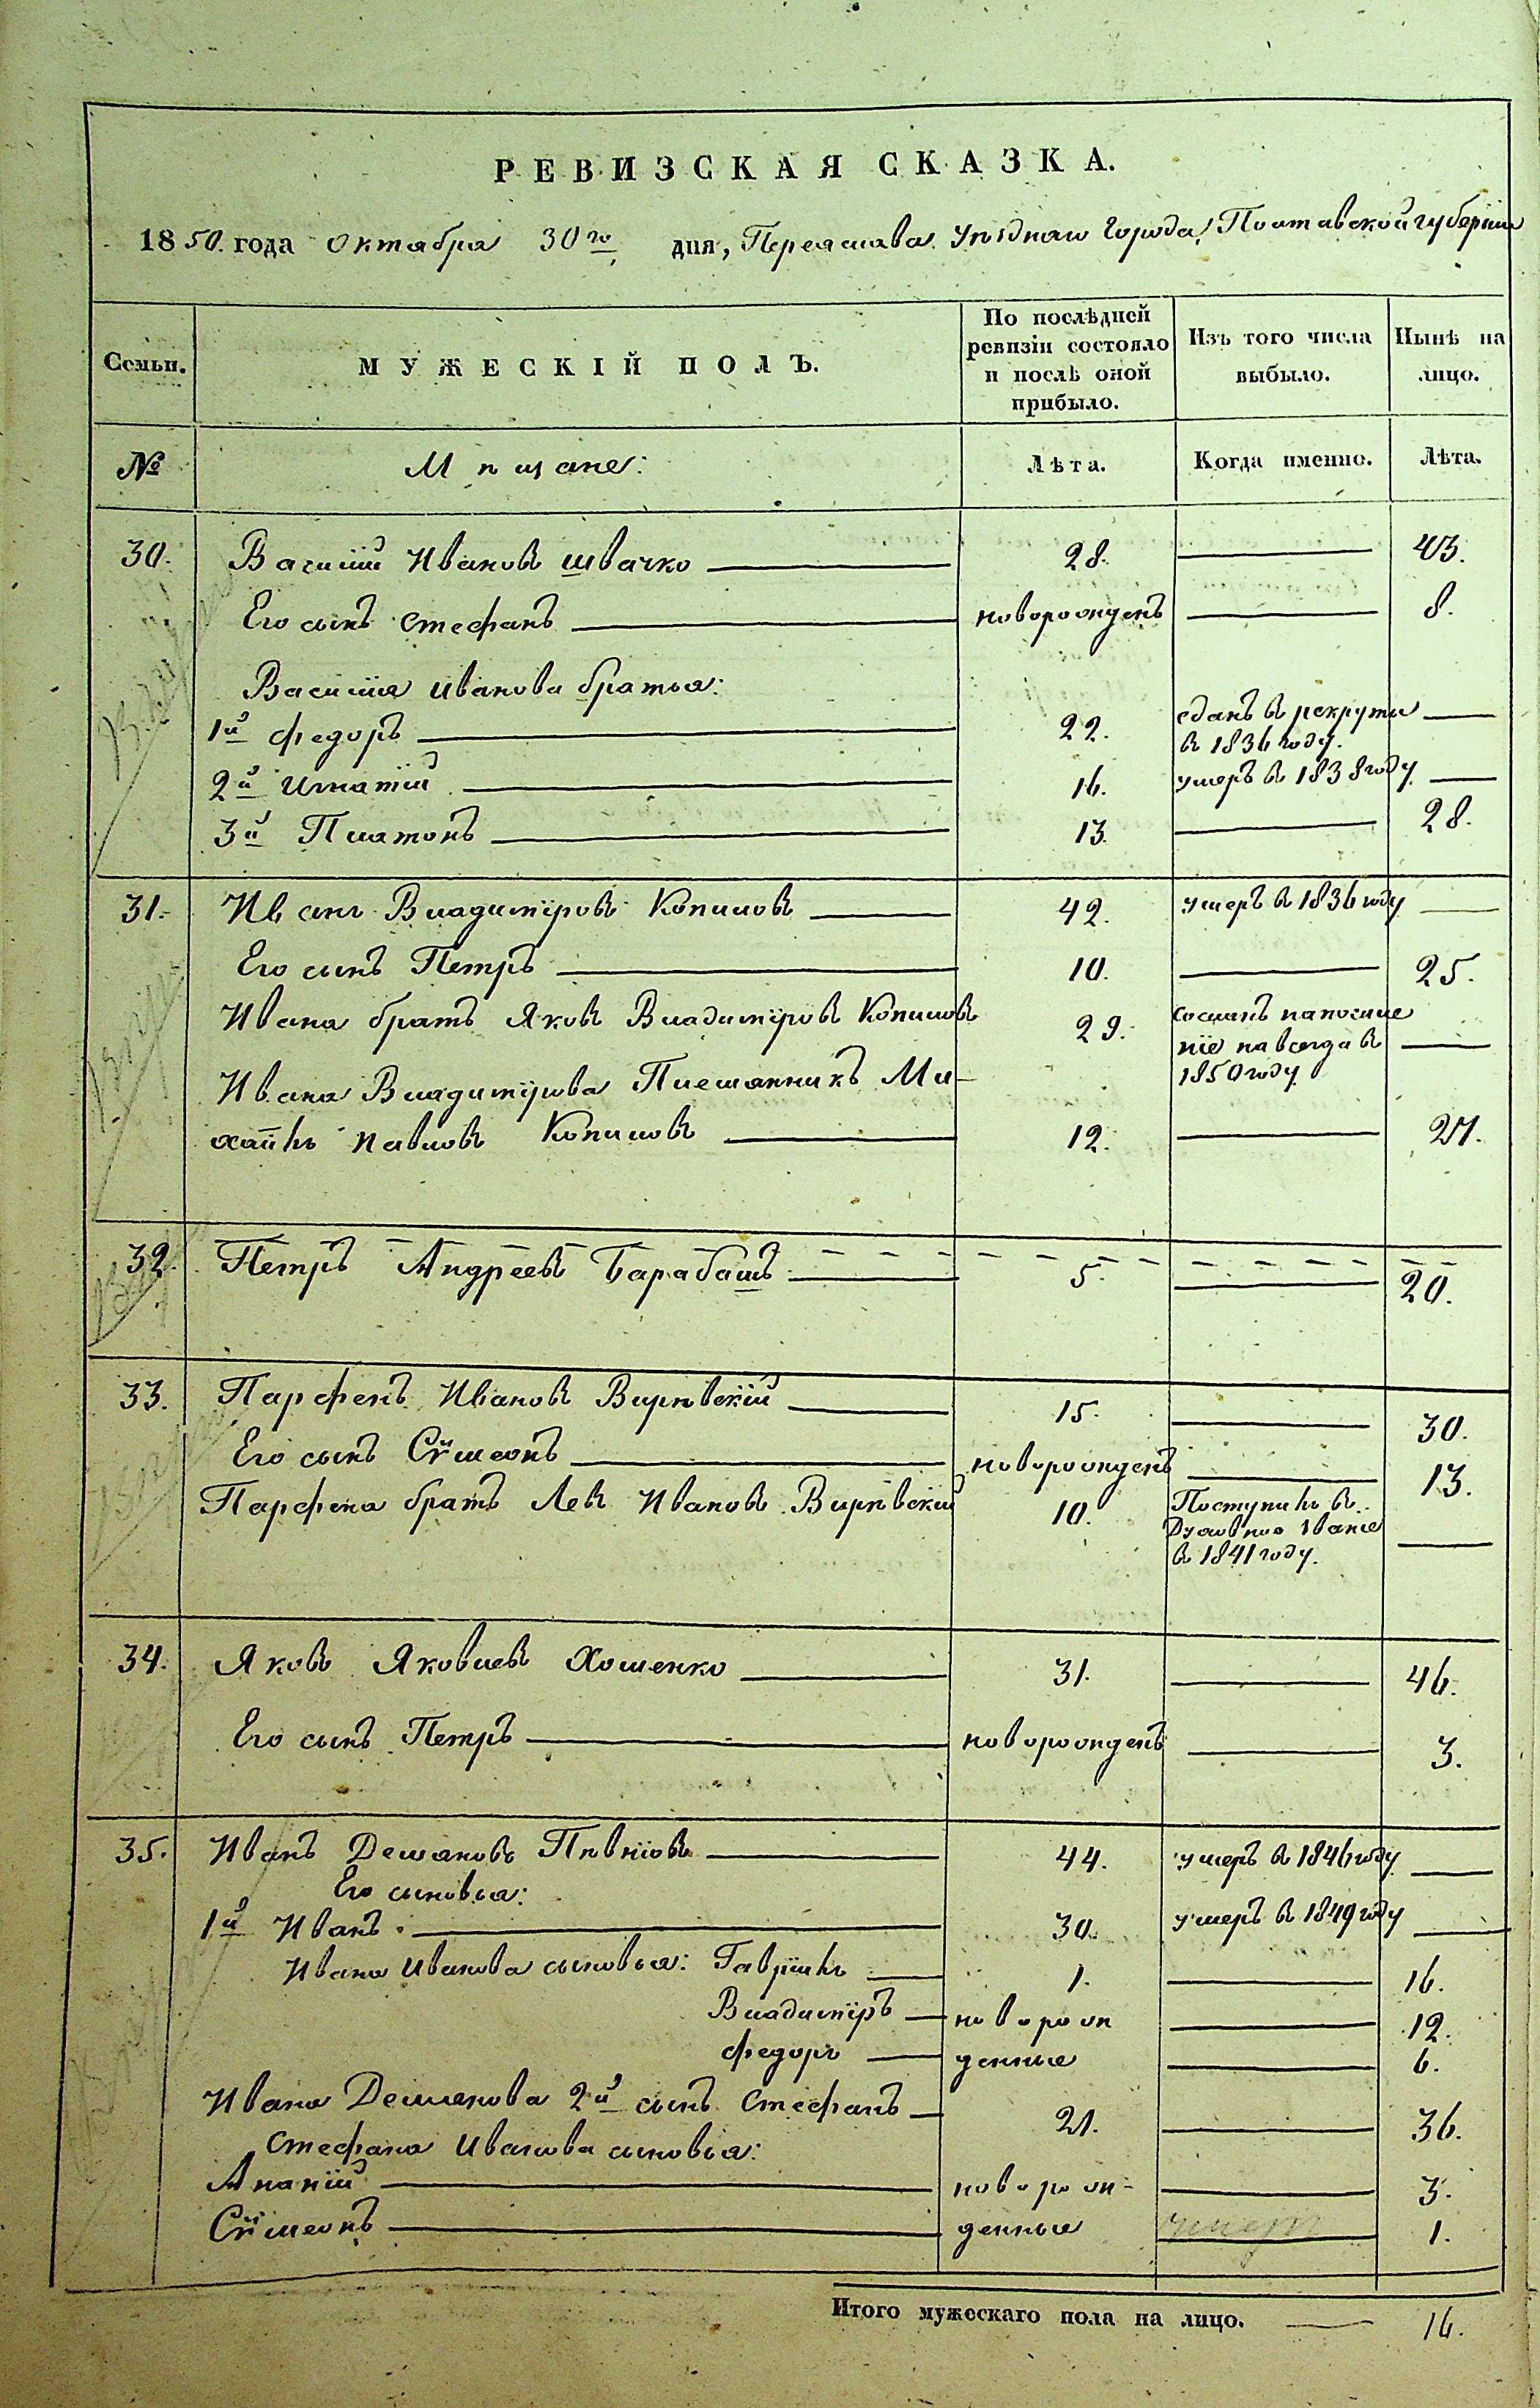 РЕВИЗСКАЯ СКАЗКА.
1850. года Октября 30го дня, Переяслава Уѣзднаго Города, Полтавской губерніи
Семьи. МУЖЕСКІЙ ПОЛЪ. По послѣдней ревизіи состояло и послѣ оной прибыло. Изъ того числа выбыло. Нынѣ на лицо.
№ Мѣщане: Лѣта. Когда именно. Лѣта.
30. Василий Ивановъ Швачко 28. 43.
Его сынъ Стефанъ новорожденъ 8.
Василія Иванова братья:
1й Федоръ 22. сданъ в рекруты в 1836 году.
2й Игнатій 16. умеръ в 1838 году
3й Платонъ 13. 28.
31. Иванъ Владиміровъ Копиловъ 42. умеръ в 1836 году
Его сынъ Петръ 10. 25.
Ивана братъ Яковъ Владиміровъ Копиловъ 29. Сосланъ на поселеніе навсегда в 1850 году
Ивана Владимірова Племянникъ Ми-
хаилъ Павловъ Копиловъ 12. 27.
32. Петръ Андреевъ Барабашъ 5. 20.
33. Парфенъ Ивановъ Вирѣвскій 15. 30.
Его сынъ Сѵмеонъ новорожденъ 13.
Парфена братъ Левъ Ивановъ Вирѣвскій 10. Поступилъ в Духовное званіе в 1841 году.
34. Яковъ Яковлевъ Хоменко 31. 46.
Его сынъ Петръ новорожденъ 3.
35. Иванъ Демяновъ Пѣвнювъ 44. умеръ в 1846 году
Его сыновья:
1й Иванъ 30. умеръ в 1849 году
Ивана Иванова сыновья: Гавріилъ 1. 16.
Владиміръ новорож 12.
Федоръ денные 6.
Ивана Демянова 2й сынъ Стефанъ 21. 36.
Стефана Иванова сыновья:
Ананій новорож- 3.
Сѵмеонъ денные умер 1.
Итого мужескаго пола на лицо. 16.